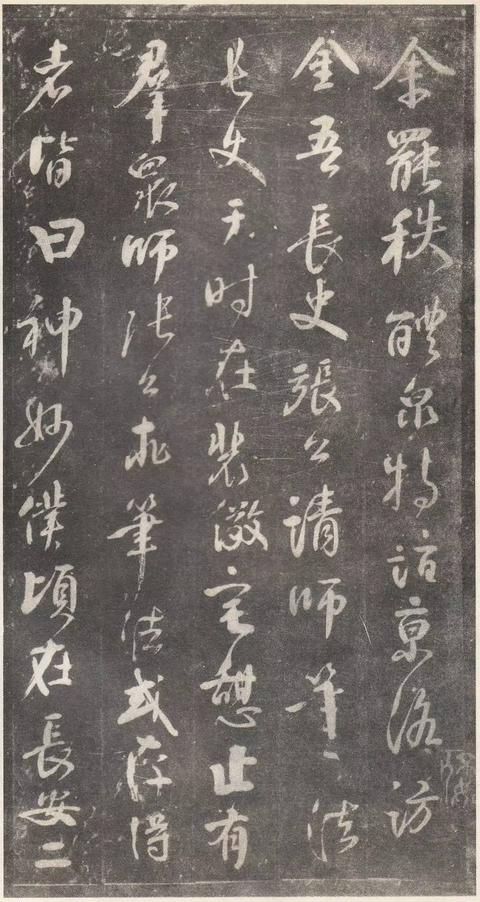 余罷秩醴泉特詣京洛訪
金吾長史張公請師筆法
長史于時在裴儆宅憩止有
羣眾師張公求筆法或存得
者皆曰神妙僕頃在長安二